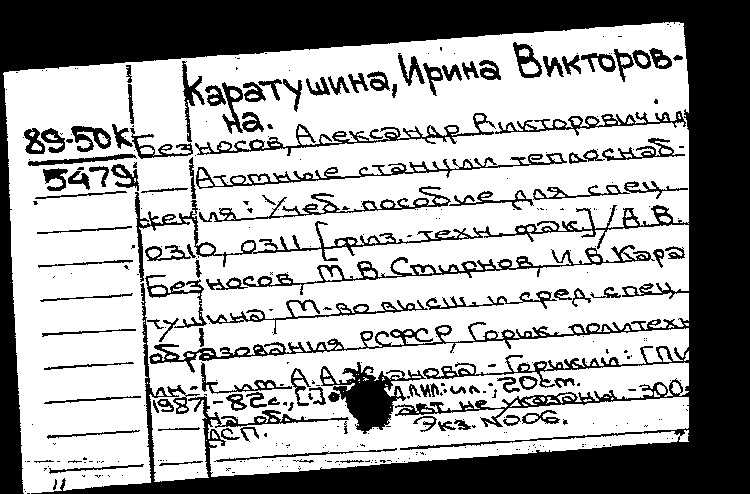 Каратушина, Ирина Викторов-
на.
89-50к
5479
Безносов, Александр Викторович и др
Атомные станции теплоснаб-
жения: Учеб. пособие для спец.
0310, 0311 [физ.-техн. фак.] / А.В.
Безносов, М.В. Смирнов, И.В. Кара
тушина; М-во высш. и сред. спец.
образования РСФСР, Горьк. политехн
ин-т им. А.А. Жданова. - Горький: ГПИ
1987. - 82 с., [1] : ил.; 20 см.
На обл. авт. не указаны. - 300
ДСП. Экз. №006.